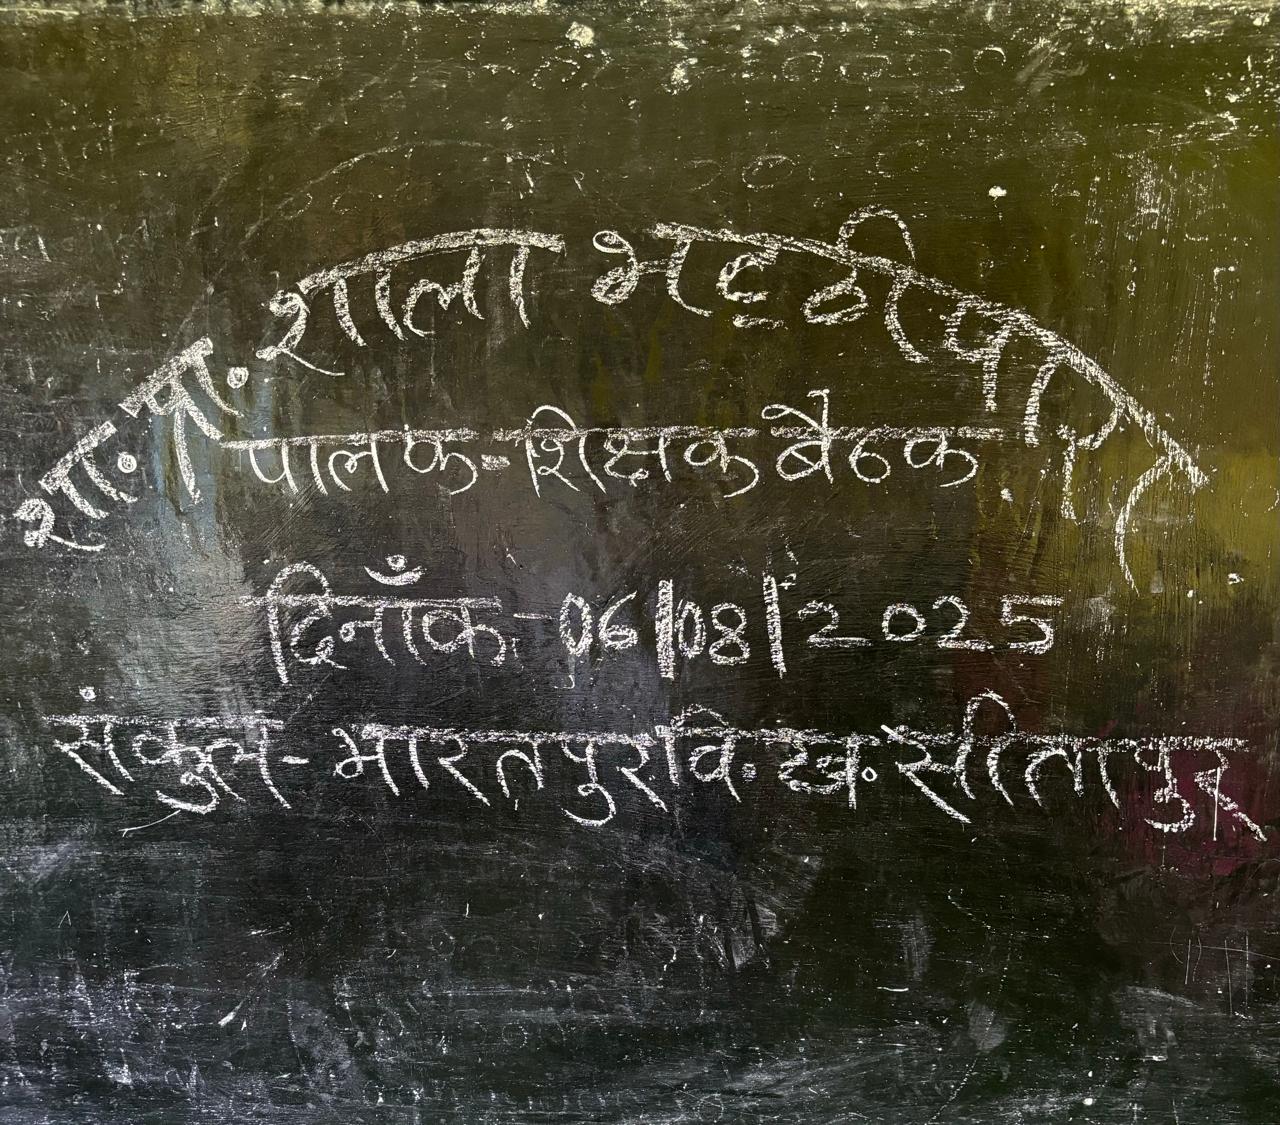 शा. प्रा. शाला भट्ठीपारा
पालक-शिक्षक बैठक
दिनाँक-06/08/2025
संकुल-भारतपुर वि.ख. सीतापुर